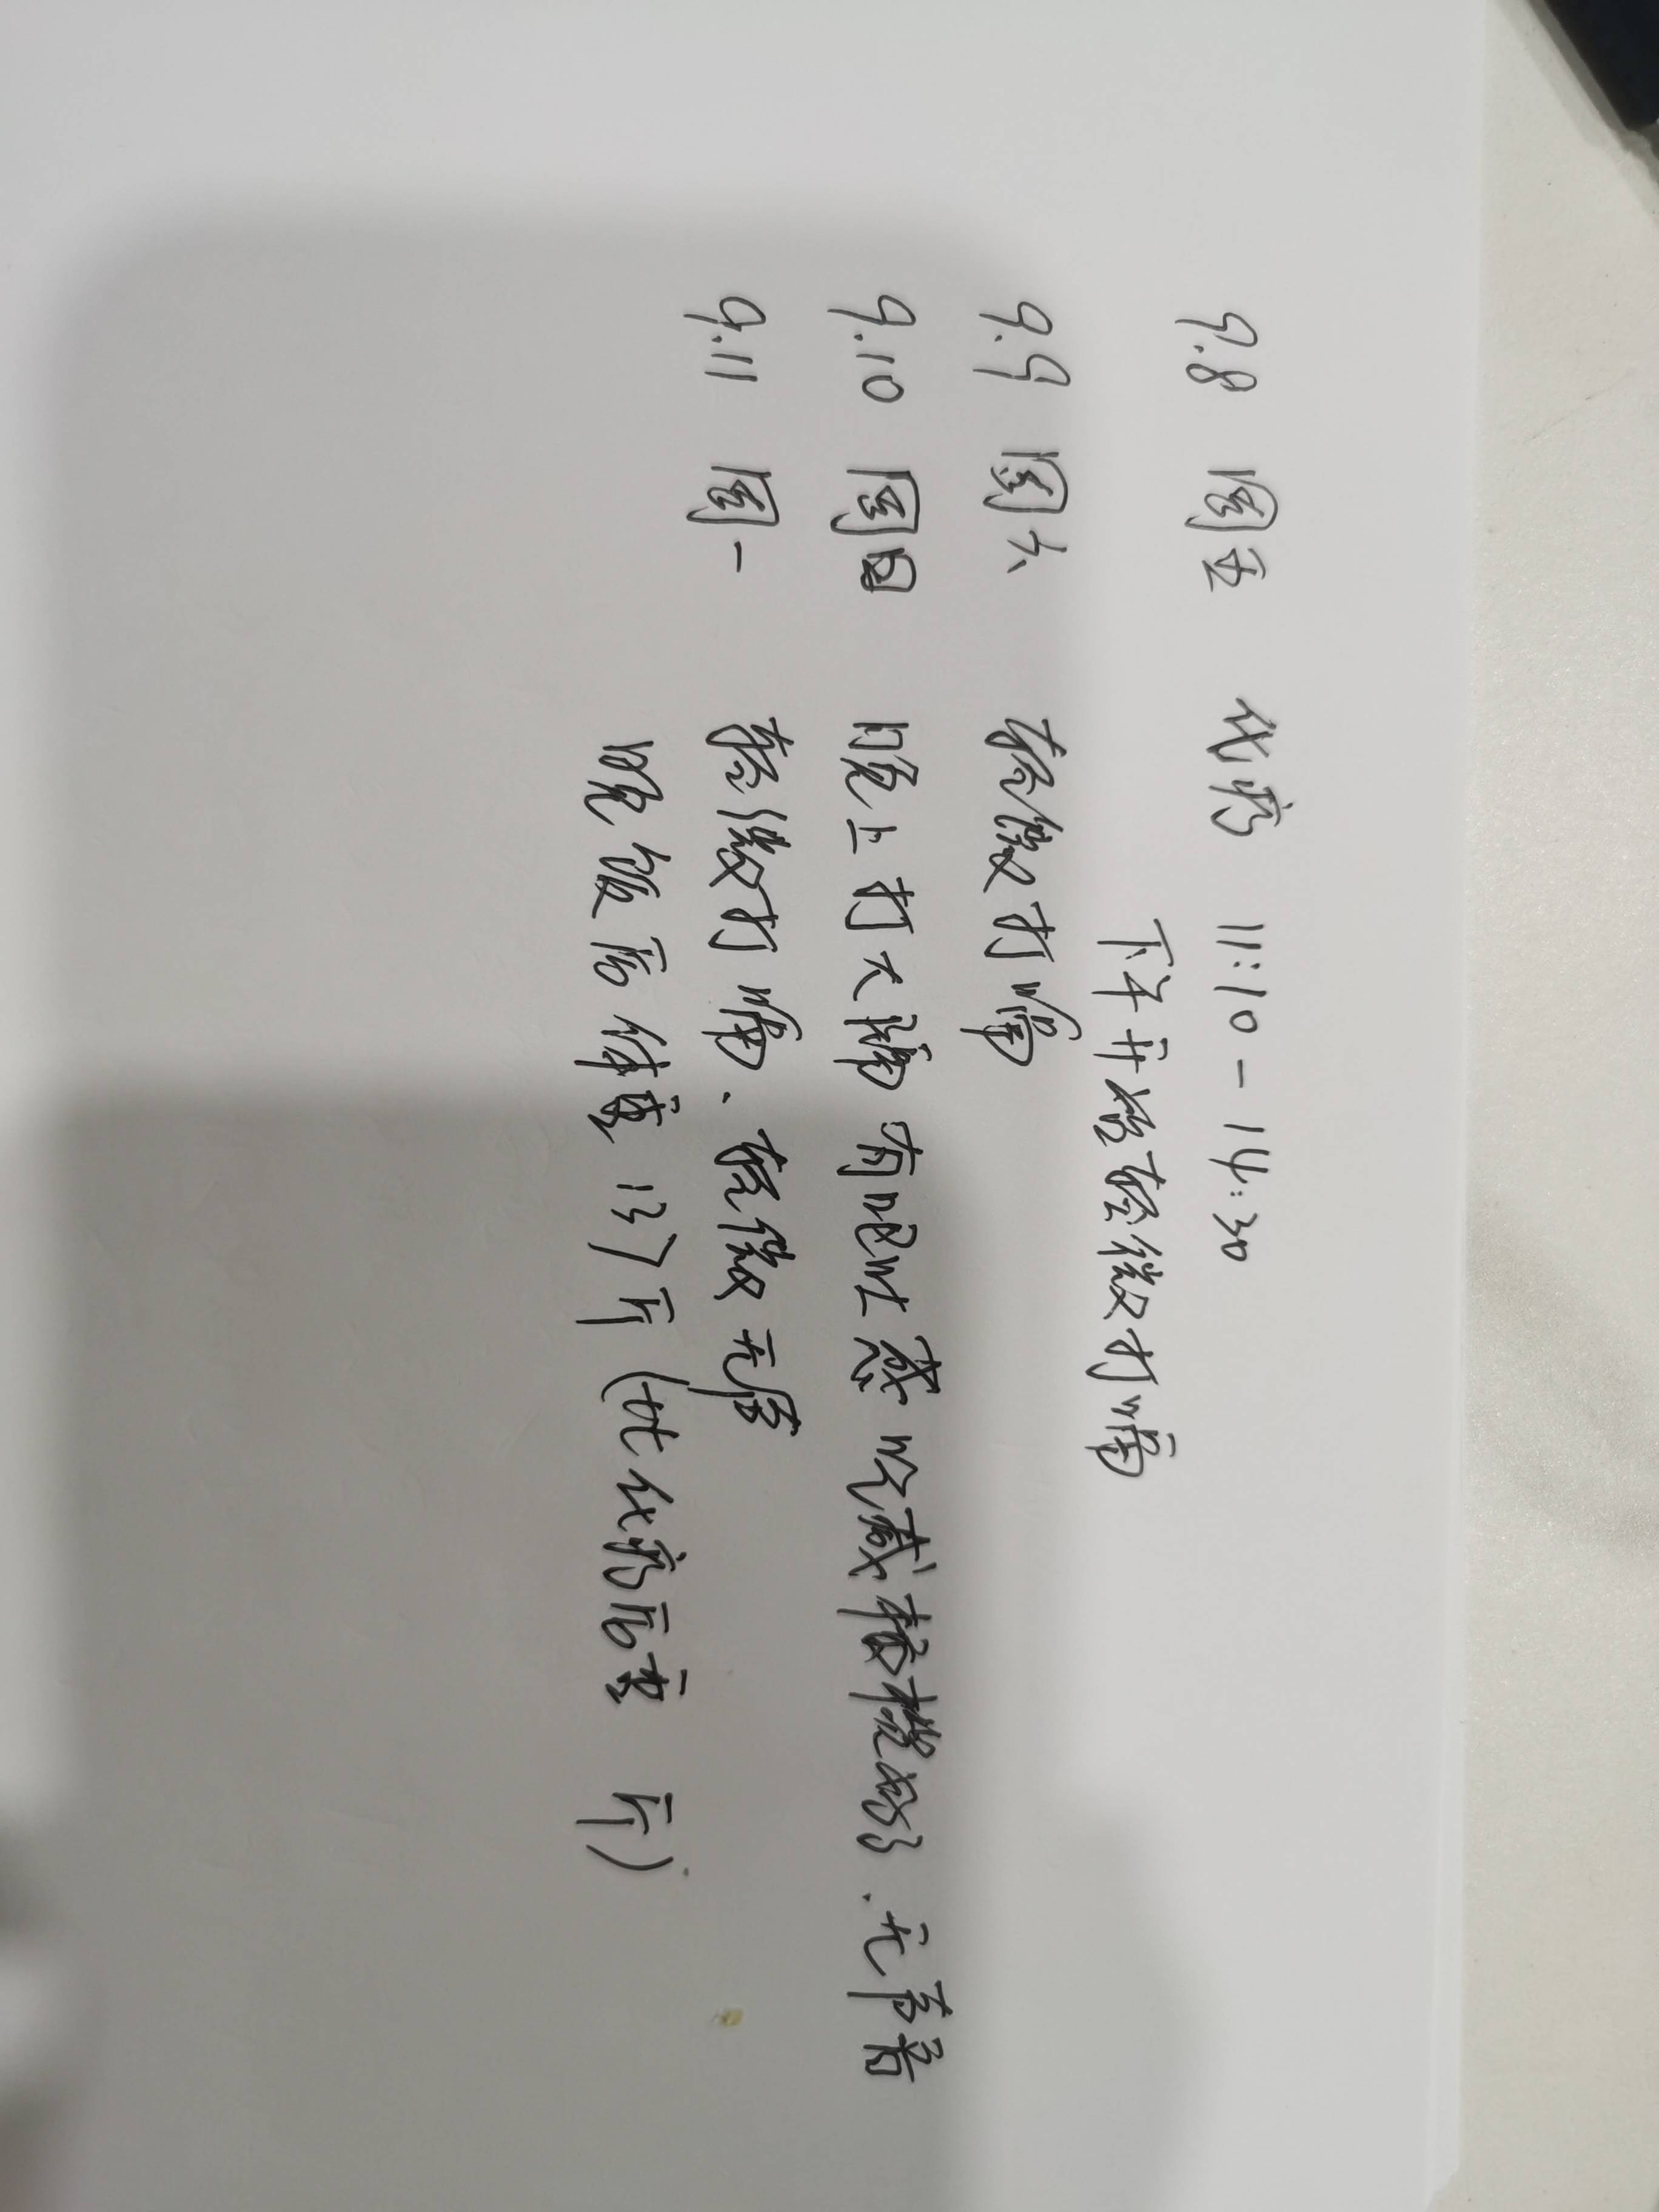 9.8 周五 化疗 11:10-14:30
下午开始轻微打嗝
9.9 周六 轻微打嗝
9.10 周日 晚上打大嗝 有呕吐感 吃咸榄橄好了.无声音
9.11 周一 轻微打嗝、轻微无声
晚饭后体重137斤(比化疗后重 斤)